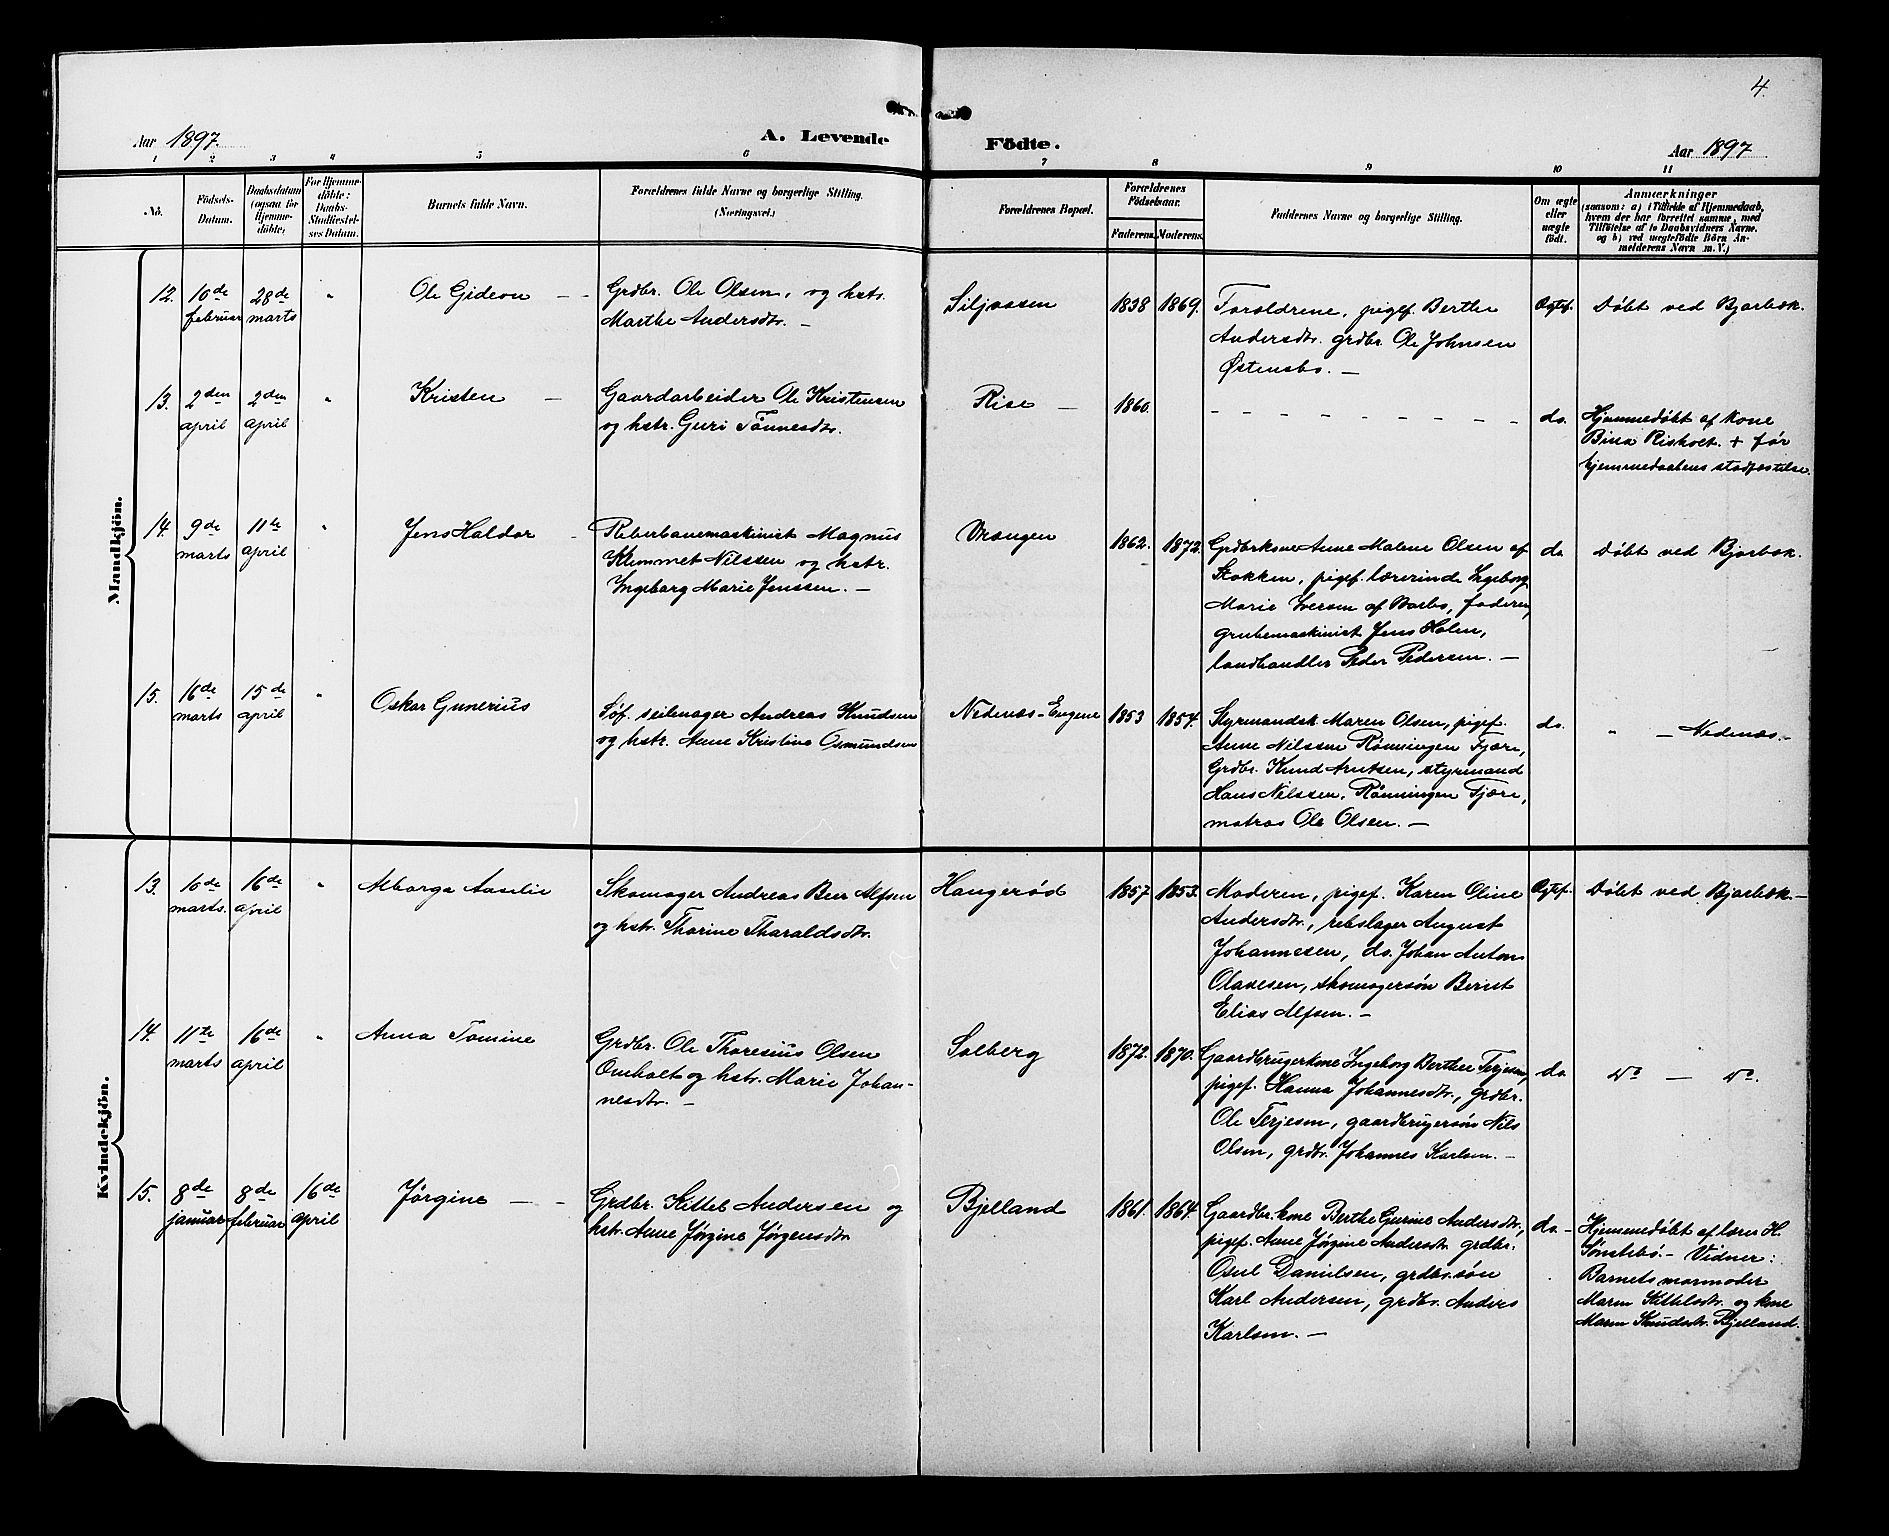 4.
Aar 1897.
A. Levende Födte.
Aar 1897
1 2 3 4 5 6 7 8 9 10 11
No.
Födsels-
Datum.
Daabsdatum
(ogsaa for
Hjemme-
döbte)
For Hjemme-
döbte:
Daabs-
Stadfæstel-
ses Datum.
Barnets fulde Navn.
Forældrenes fulde Navne og borgerlige Stilling.
(Næringsvei.)
Forældrenes Bopæl.
Forældrenes
Födselsaar.
Faderens. Moderens.
Faddernes Navne og borgerlige Stilling.
Om ægte
eller
uægte
födt.
Anmærkninger
(saasom: a) i Tilfælde af Hjemmedaab,
hvem der har forrettet samme, med
Tilföielse af to Daabsvidners Navne.
og b) ved uægtefödte Börn An-
melderens Navn m. V.)
Mandkjön.
12. 10de februar 28de marts " Ole Gideon - -
Grdbr. Ole Olsen, og hstr.
Marthe Andersdtr. -
Siljuaasen 1838 1869.
Forældrene, pigef. Berthe
Andersdtr. grdbr. Ole Johnsen
Østensbo. -
Ægtef. Døbt ved Bjorbæk.
13. 2den april 2den april " Kristen -
Gaardarbeider Ole Kristensen
og hstr. Guri Tønnesdtr.
Rise - 1860.
- - - - - - - - - -
do. Hjemmedøbt af kone
Bina Risholt. + før
hjemmedaabens stadfæstelse.
14. 9de marts 11te april " Jens Haldor -
Reberbanemaskinist Magnus
Klemmet Nilssen og hstr.
Ingeborg Marie Jenssen. -
Vrængen 1862. 1872.
Grdbrkone Anne Malene Olsen af
Stokken, pigef. lærerinde Ingeborg
Marie Iversen af Barbo, faderen,
grubemaskinist Jens Holen,
landhandler Peder Pedersen. -
do Døbt ved Bjorbæk.
15. 16de marts 15de april " Oskar Gunerius
Søf. seilmager Andreas Knudsen
og hstr. Anne Kristine Osmundsen
Nedenæs-Engene 1853 1854.
Styrmandsk. Maren Olsen, pigef.
Anne Nilssen Rønningen Fjære,
Grdbr. Knud Arntsen, styrmand
Hans Nilssen, Rønningen Fjære,
matros Ole Olsen. -
do. " - Nedenæs. -
Kvindekjön.
13. 10de marts. 16de april " Alborga Aasilie
Skomager Andreas Beer Alfsen
og hstr. Thorine Tharaldsdtr.
Haugerød 1857. 1853.
Moderen, pigef. Karen Oline
Andersdtr., rebslager August
Johannesen, do. Johan Anton
Olavesen, skomagersøn Bernt
Elias Alfsen. -
Ægtef. Døbt ved Bjorbæk. -
14. 11te marts 16de april " Anna Tomine
Grdbr. Ole Thoresius Olsen
Omholt og hstr. Marie Johan-
nesdtr. -
Solberg 1872. 1870.
Gaardbrugerkone Ingeborg Berthe Terjesen,
pigef. Hanna Johannesdtr., grdbr.
Ole Terjesen, gaardbrugersøn Nils
Olsen, grdbr. Johannes Karlsen. -
do. do - do.
15. 8de januar 8de februar 16de april Jørgine - -
Grdbr. Kittel Andersen og
hstr. Anne Jørgine Jørgensdtr.
Bjelland 1861. 1864.
Gaardbr. kone Berthe Gurine Andersdtr,
pigef. Anne Jørgine Andersdtr. grdbr.
Osul Danielsen, grdbr. søn
Karl Andersen, grdbr. Anders
Karlsen. -
do. - Hjemmedøbt af lærer H.
Sønstebø. - Vidner:
Barnets mormoder
Maren Kittelsdtr. og kone
Maren Knudsdtr. Bjelland.